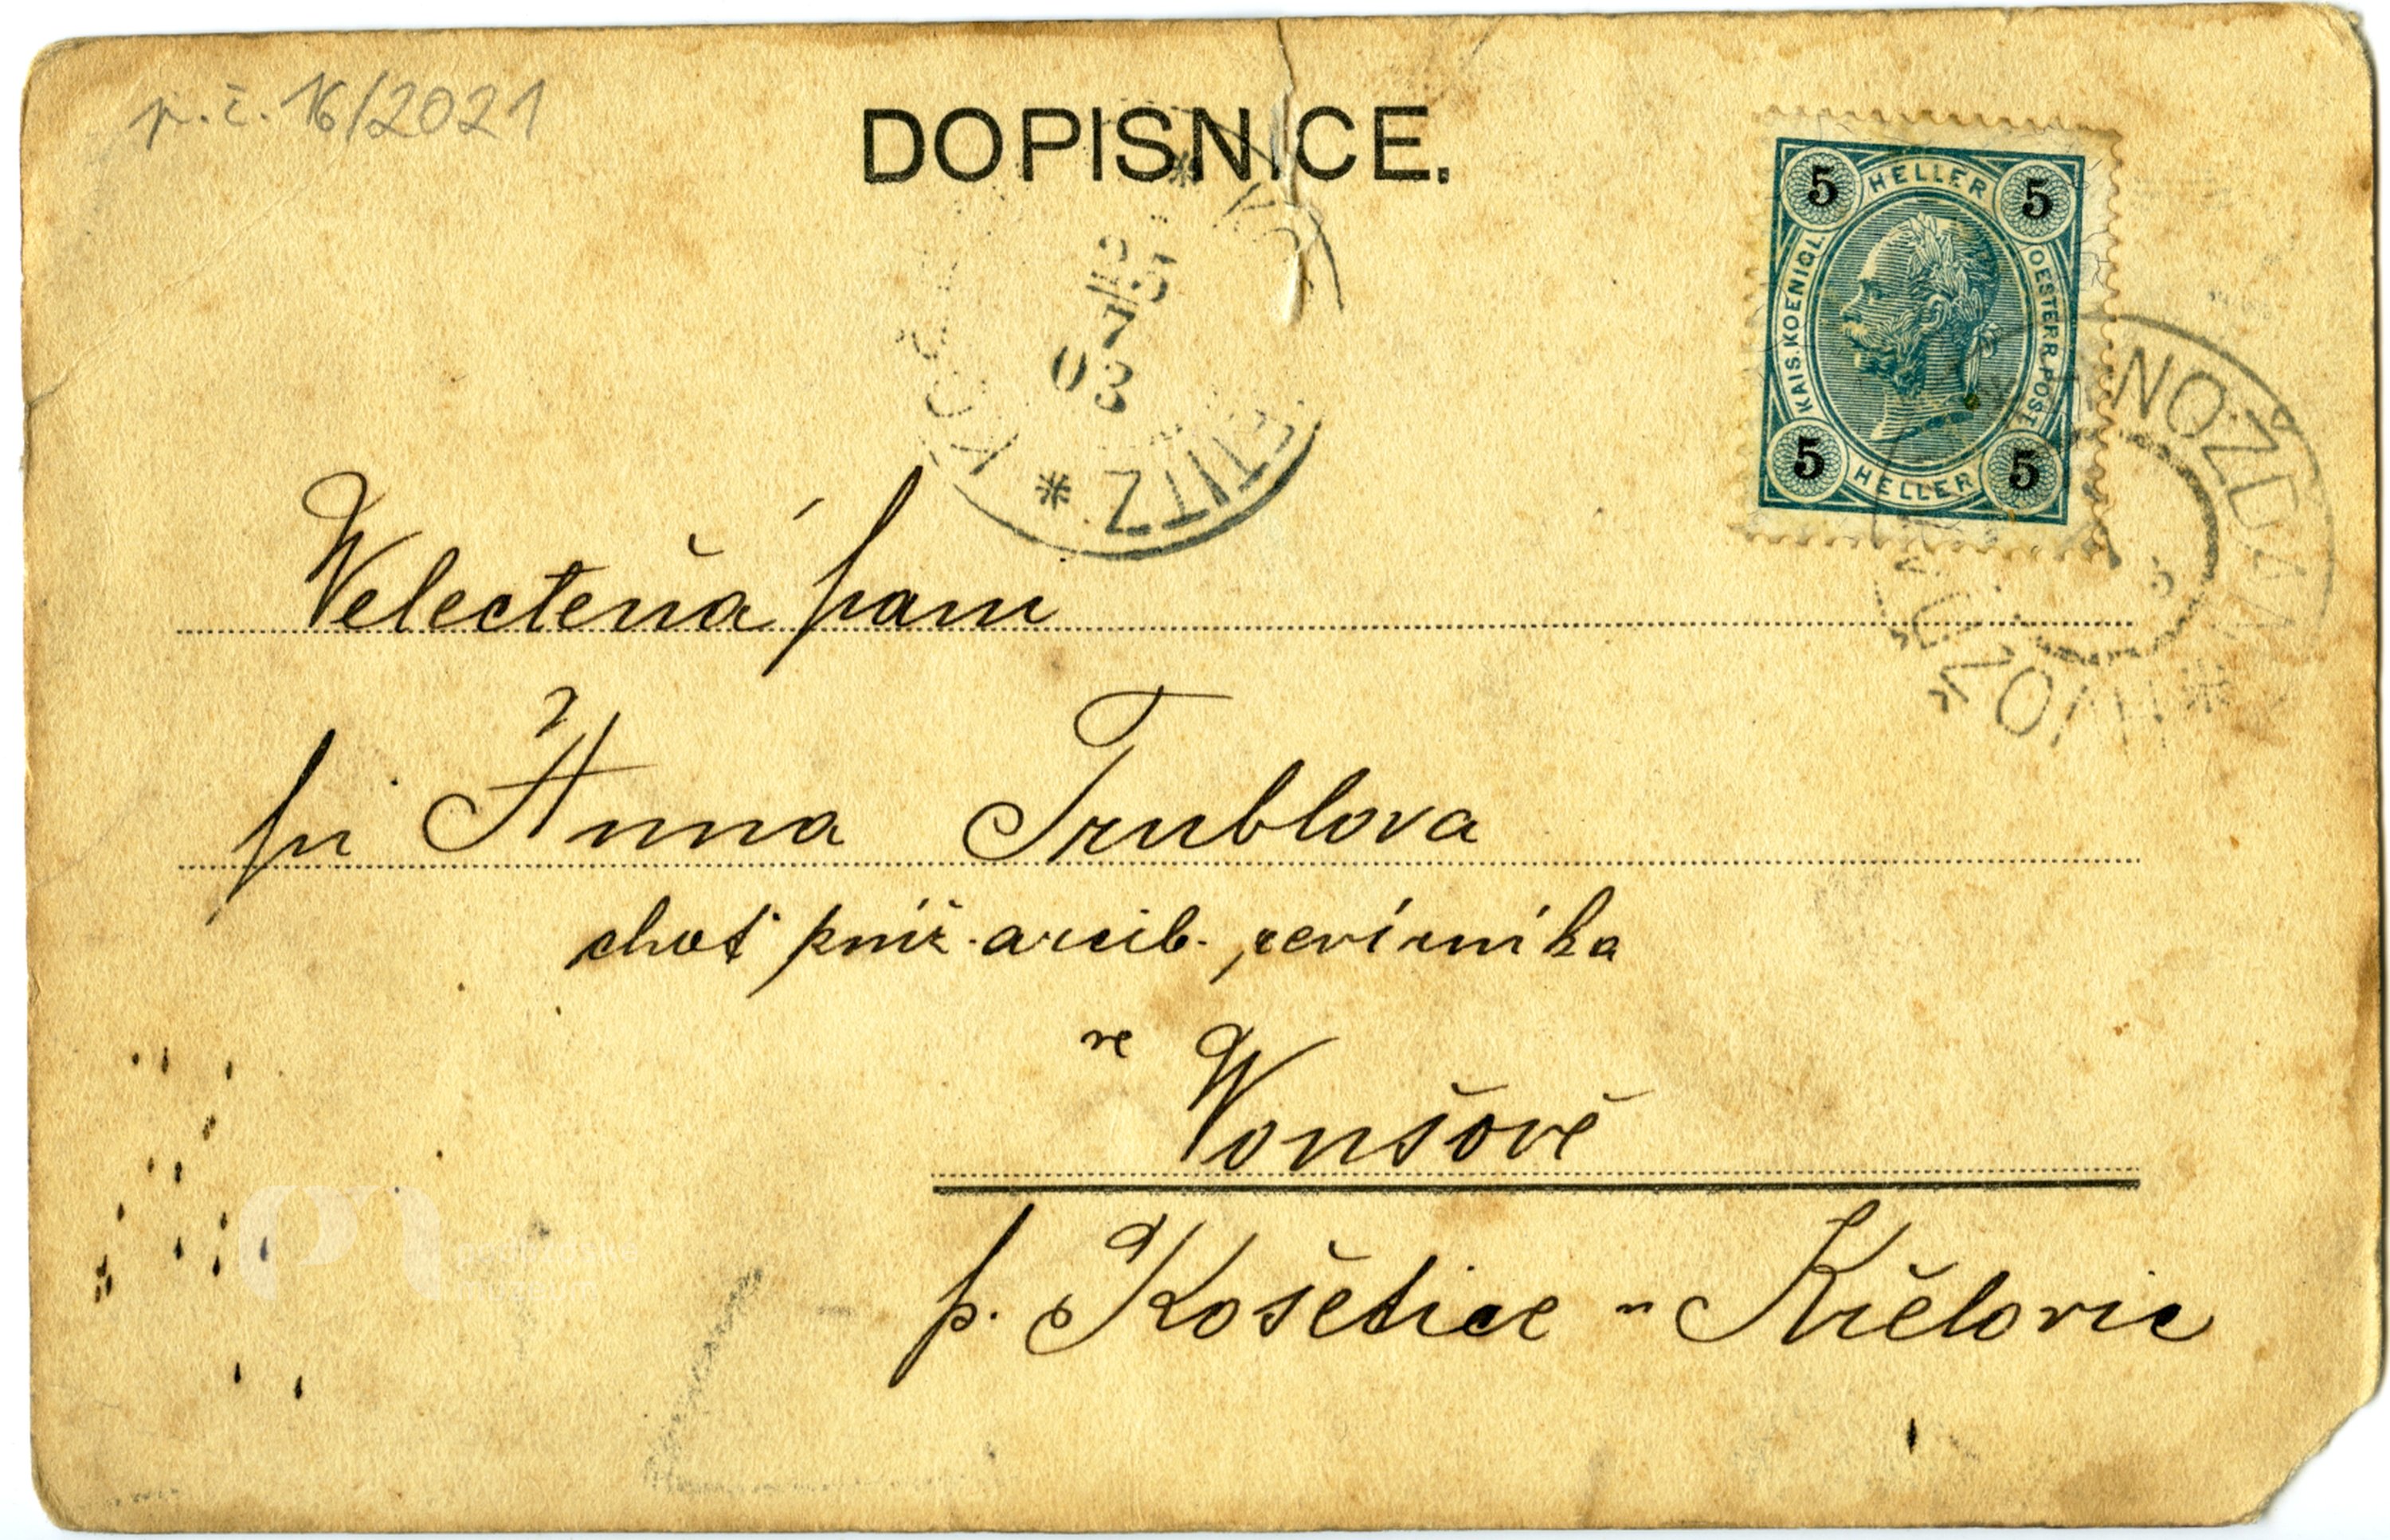 p.č. 16/2021
DOPISNICE.
5 HELLER 5
KAIS. KOENIGL. OESTERR. POST
5 HELLER 5
12/3
7
03
Velectěná paní
pí Anna Trublova
choť kníž. arcib. revírníka
ve
Wonšově
p. Košetice - Křelovic